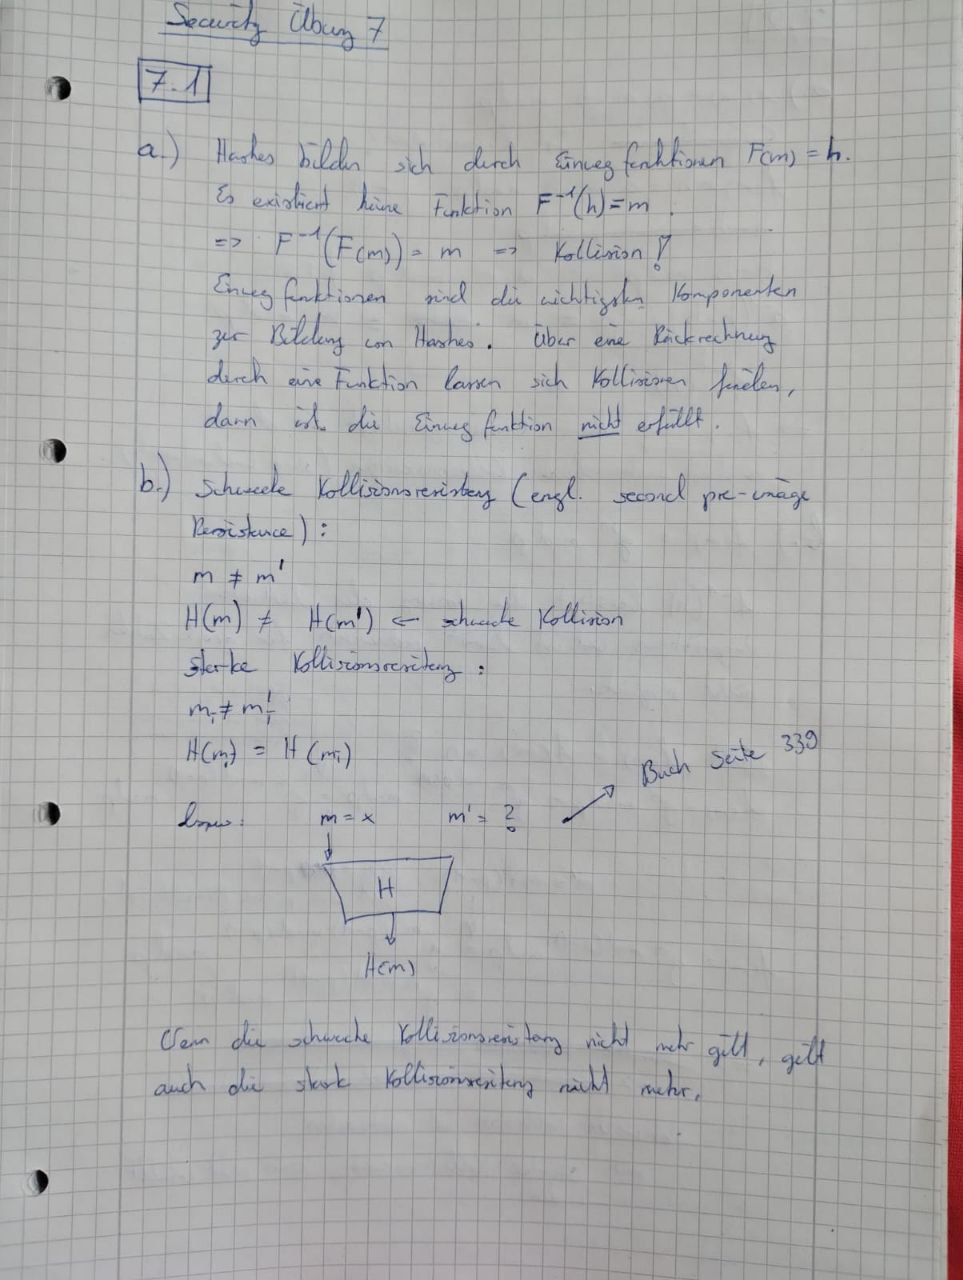 Security Übung 7
7.1
a.) Hashes bilden sich durch Einwegfunktionen F(m) = h.
Es existiert keine Funktion F⁻¹(h)=m.
=> F⁻¹(F(m)) = m => Kollision!
Einwegfunktionen sind die wichtigsten Komponenten
zur Bildung von Hashes. Über eine Rückrechnung
durch eine Funktion lassen sich Kollisionen finden,
dann ist die Einwegfunktion nicht erfüllt.
b.) Schwache Kollisionsresistenz (engl. second pre-image
Resistance):
m ≠ m'
H(m) ≠ H(m') ← schwache Kollision
starke Kollisionsresistenz:
mᵢ ≠ mᵢ'
H(mᵢ) = H(mᵢ)
Buch Seite 339
m = x m' = ?
H
H(m)
Wenn die schwache Kollisionsresistenz nicht mehr gilt, gilt
auch die stark Kollisionsresistenz nicht mehr.